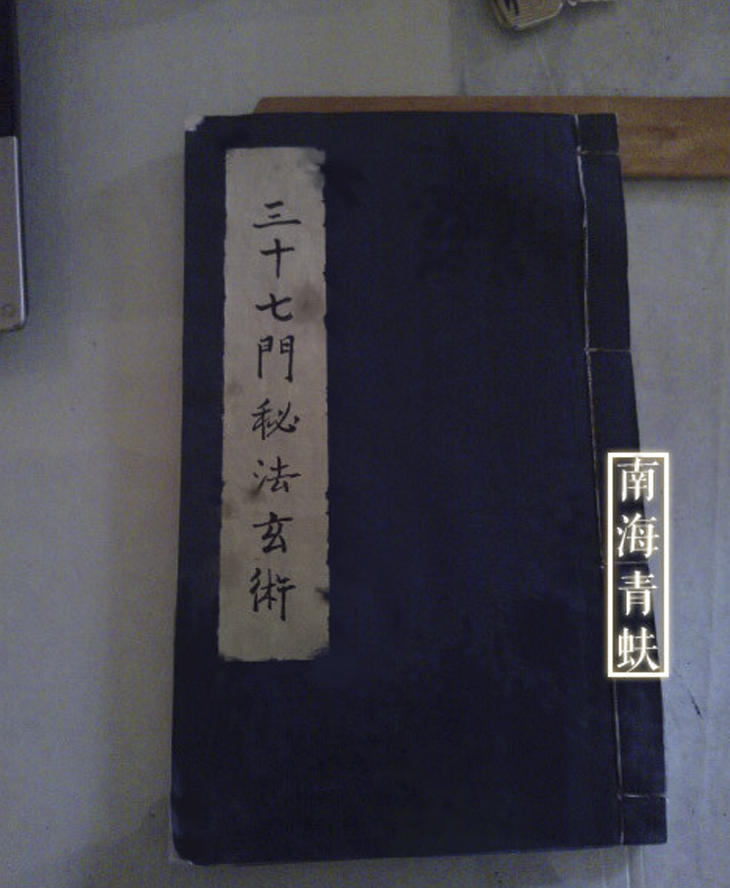 三十七門秘法玄術
南海青蚨